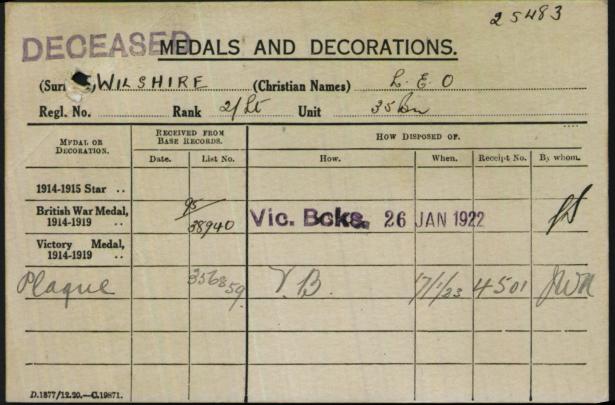 25483
DECEASED
MEDALS AND DECORATIONS.
(Sur , WILSHIRE (Christian Names) L. E. O
Regl. No. Rank 2/Lt Unit 35 Bn
MEDAL OR DECORATION. RECEIVED FROM BASE RECORDS. HOW DISPOSED OF.
Date. List No. How. When. Receipt No. By whom.
1914-1915 Star ..
British War Medal, 1914-1919 .. 95/38940 Vic. Bcks. 26 JAN 1922
Victory Medal, 1914-1919 ..
Plaque 356859. V.B. 17/1/23 4501
D.1877/12.20.—C.19871.